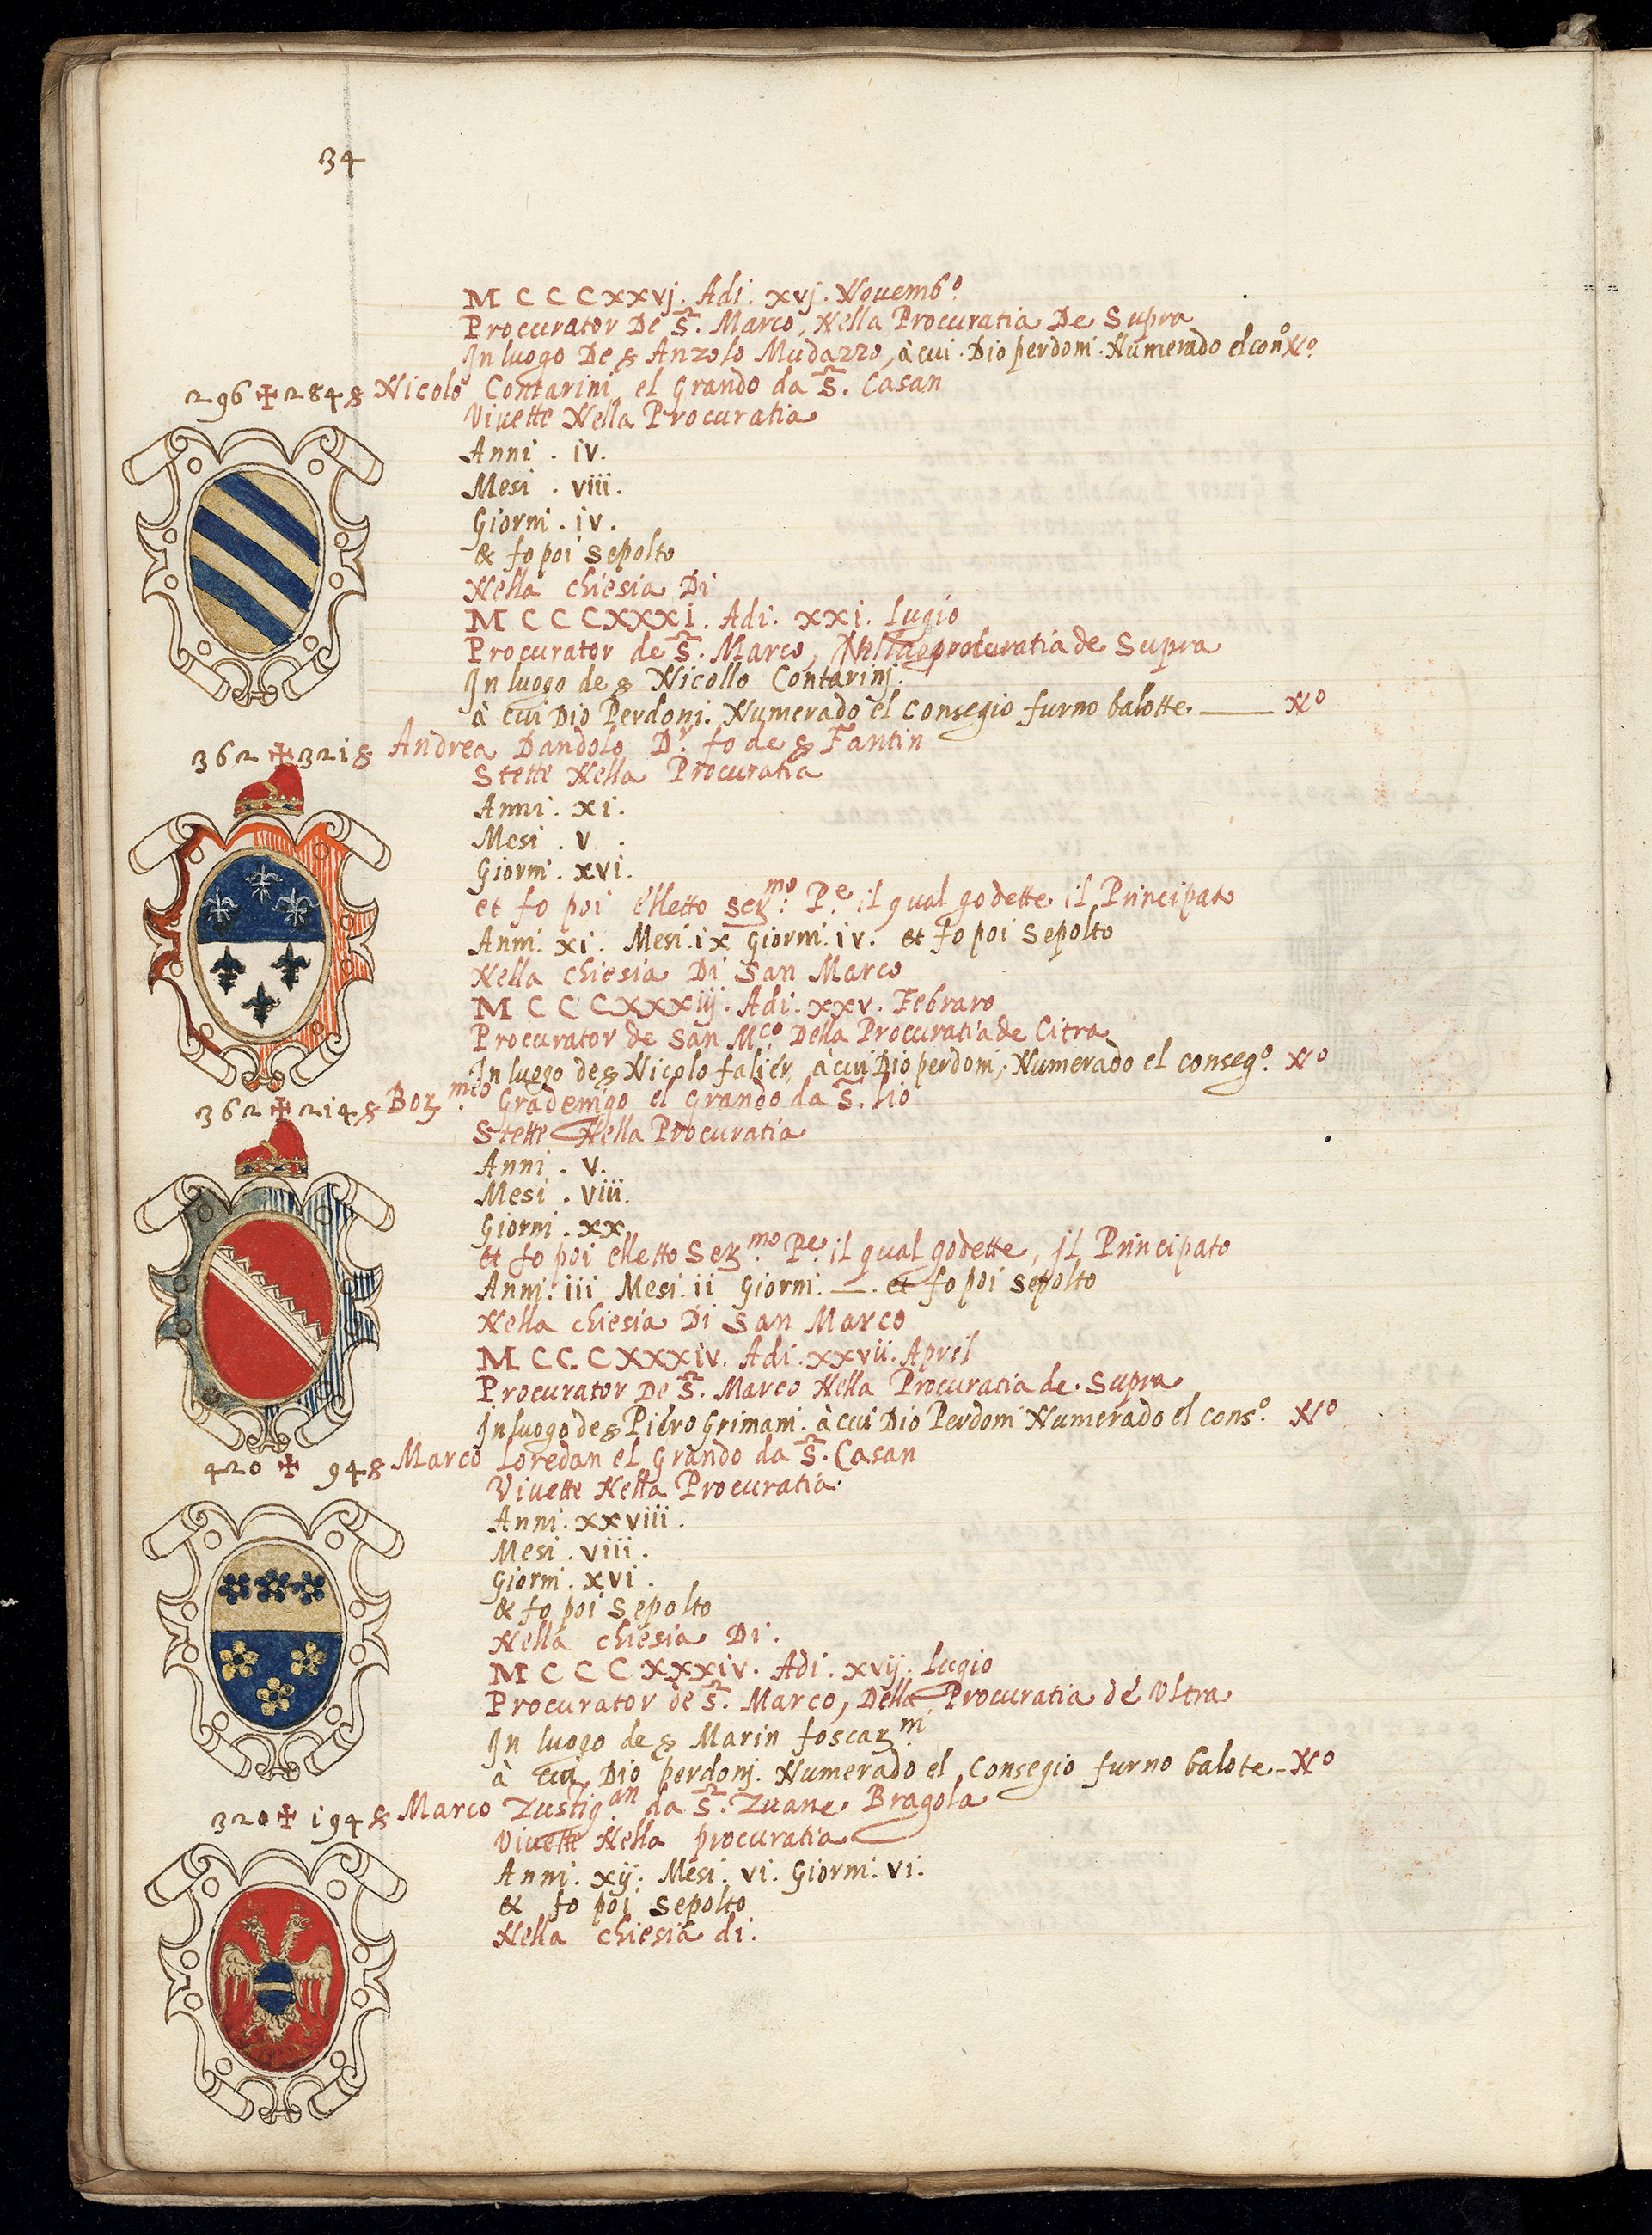 34
M C C C xxvj. Adi. xvj. Novemb.º
Procurator De S. Marco, Nella Procuratia De Supra
In luogo De s Anzolo Mudazzo, à cui. Dio perdoni. Numerado el conº Nº
296 ✠ 284 s Nicolò Contarini el Grando da S. Casan
Vivette Nella Procuratia
Anni . iv.
Mesi . viii.
Giorni . iv.
& fo poi sepolto
Nella chiesia Di
M C C C XXXI. Adi. xxi. Lugio
Procurator de S. Marco, Nella procuratia de Supra
In luogo de s Nicollo Contarinj.
à cui Dio Perdonj. Numerado el Consegio furno balotte. Nº
362 ✠ 321 s Andrea Dandolo D.r fo de s Fantin
Stette Nella Procuratia
Anni. xi.
Mesi . v .
Giorni. xvi.
et fo poi elletto Ser.mo P.e il qual godette il Principato
Anni. xi. Mesi. ix Giorni. iv. et fo poi sepolto
Nella chiesia Di San Marco
M C C C XXXiij. Adi. xxv. Febraro
Procurator de San M.co Della Procuratia de Citra
In luogo de s Nicolo falier, à cui Dio perdoni, Numerado el conseg.º Nº
362 ✠ 214 s Bor.meo Gradenigo el Grando da S. Lio
Stette Nella Procuratia
Anni . V.
Mesi . viii.
Giorni . xx.
et fo poi elletto Ser.mo P.e il qual godette, jl Principato
Anni. iii Mesi. ii Giorni. —. et fo poi sepolto
Nella chiesia Di San Marco
M C C C XXXiv. Adi. xxvii. April
Procurator De S. Marco Nella Procuratia de. Supra
In luogo de s Piero Grimani. à cui Dio Perdoni Numerado el cons.º Nº
420 ✠ 94 s Marco Loredan el Grando da S. Casan
Vivette Nella Procuratia.
Anni. xxviii.
Mesi . viii.
Giorni . xvi.
& fo poi sepolto
Nella chiesia Di.
M C C C XXXiv. Adi. xvij. Lugio
Procurator de S. Marco, Della Procuratia de Ultra
In luogo de s Marin foscar.ni
à cui Dio perdonj. Numerado el Consegio furno balote. Nº
320 ✠ 194 s Marco Zustig.an da S. Zuane Bragola
Vivette Nella procuratia
Anni. xij. Mesi. vi. Giorni. vi.
& fo poi sepolto
Nella chiesia di.